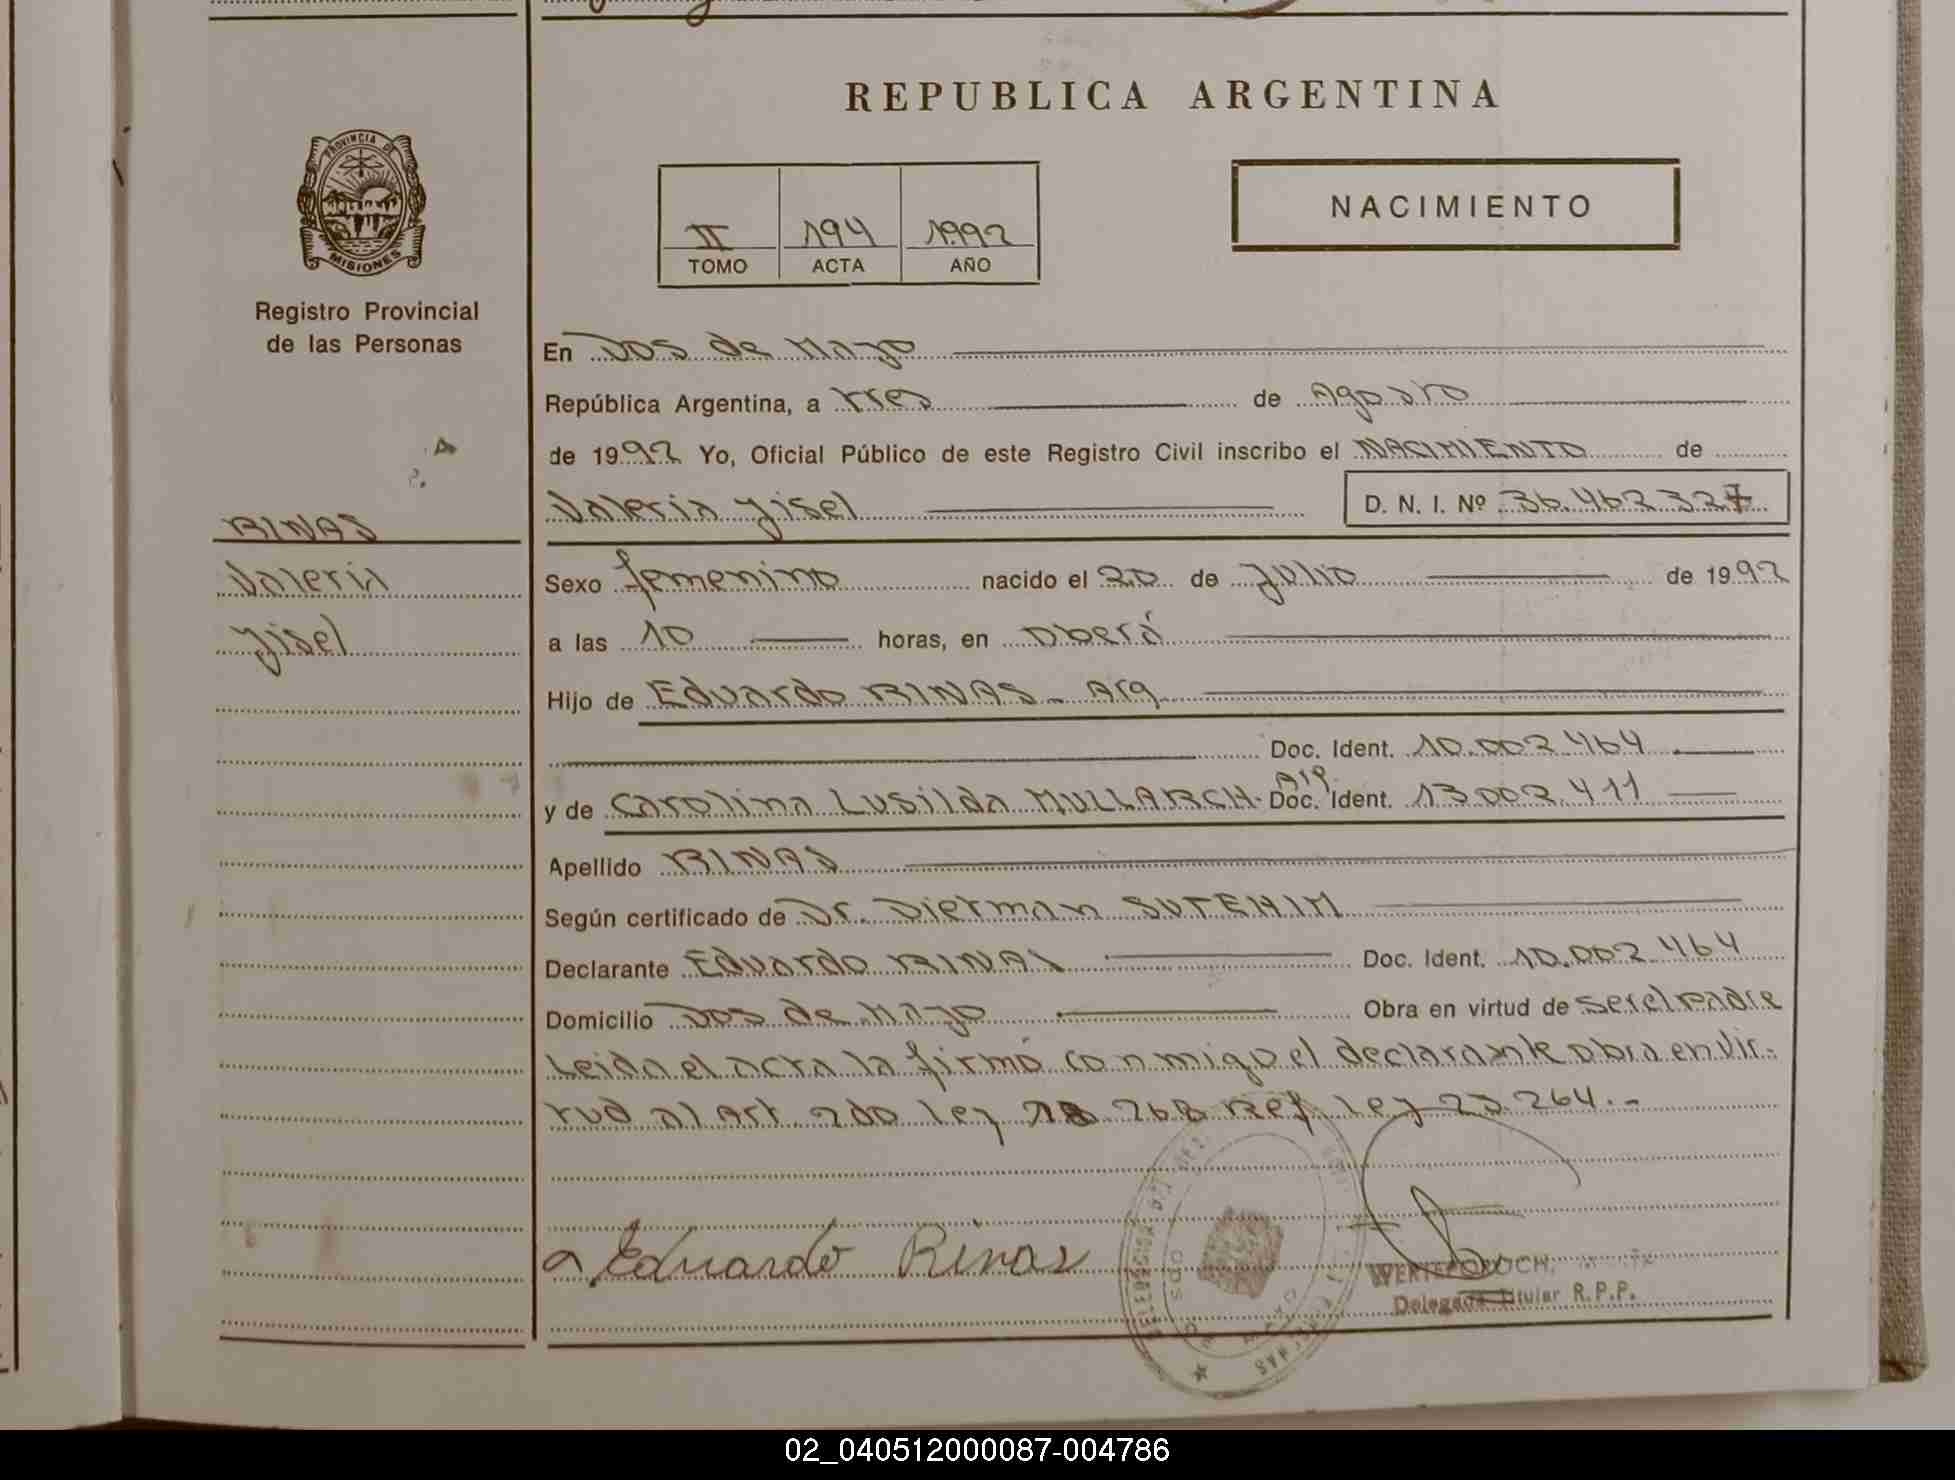 REPUBLICA ARGENTINA
PROVINCIA DE
MISIONES
Registro Provincial
de las Personas
II 194 1992
TOMO ACTA AÑO
NACIMIENTO
En Dos de Mayo
República Argentina, a tres de Agosto
de 1992 Yo, Oficial Público de este Registro Civil inscribo el NACIMIENTO de
Valeria Yisel D. N. I. Nº 36.462.327
RINAS
Valeria
Yisel
Sexo femenino nacido el 20 de Julio de 1992
a las 10 horas, en Oberá
Hijo de Eduardo RINAS - Arg
Doc. Ident. 10.002.464
y de Carolina Lusilda MULLARCH - Arg. Doc. Ident. 13.002.411
Apellido RINAS
Según certificado de Dr. Dietman SUTEHIM
Declarante Eduardo RINAS Doc. Ident. 10.002.464
Domicilio Dos de Mayo Obra en virtud de ser el Padre
Leida el acta la firmó conmigo el declarante obra en vir-
tud al Art. 2do ley 18.268 Ref. ley 23.264.-
Eduardo Rinas
Delegado Titular R.P.P.
02_040512000087-004786